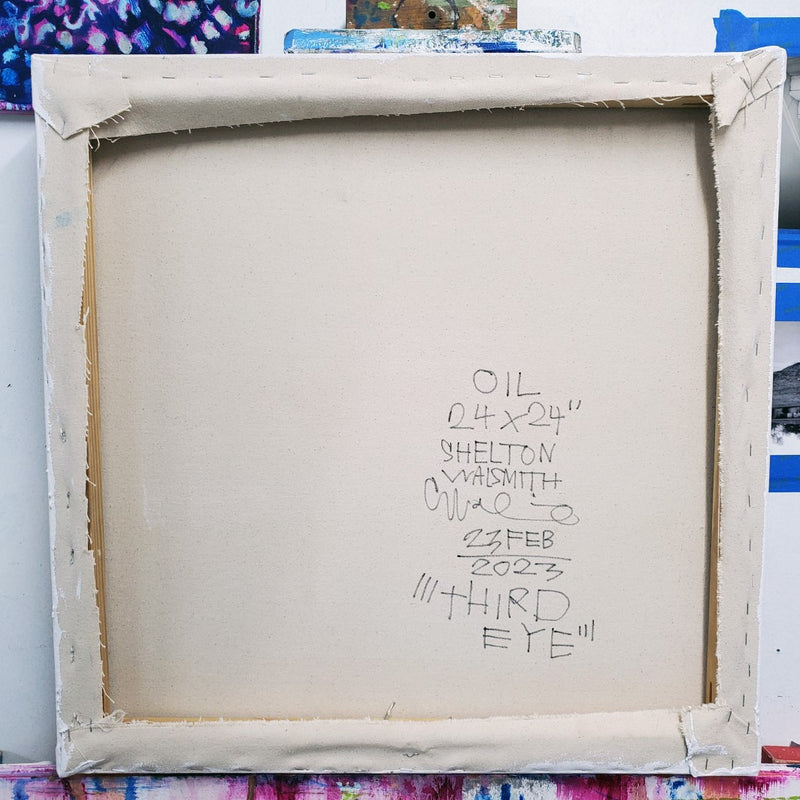 OIL
24 x 24"
SHELTON
WALSMITH
23 FEB
2023
"'THIRD
EYE"'